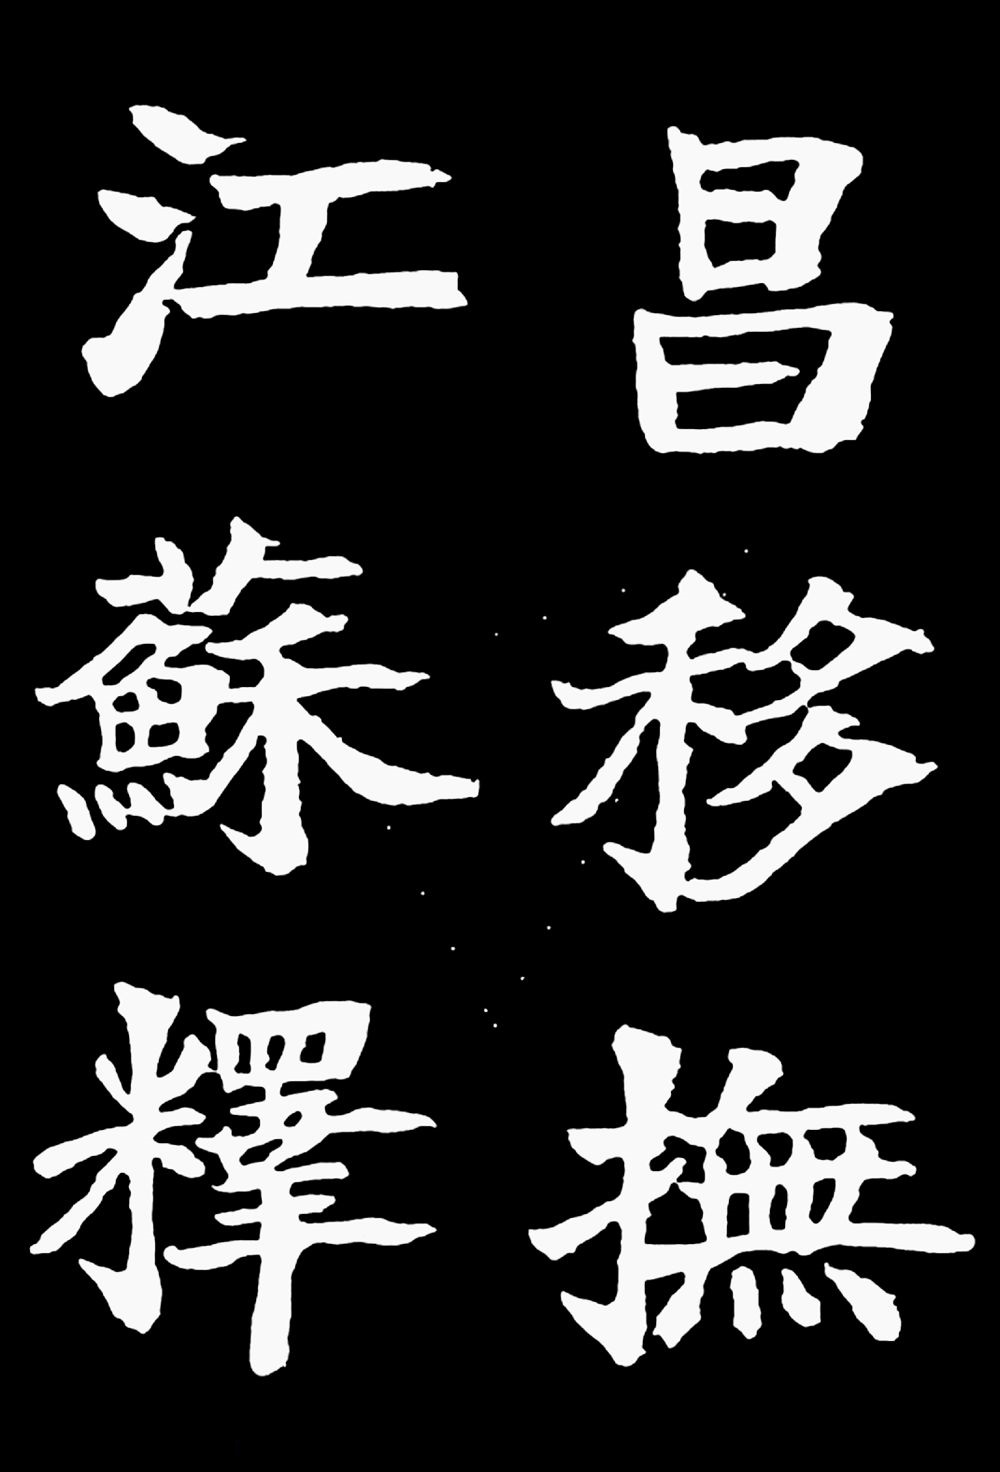 昌移撫
江蘇釋